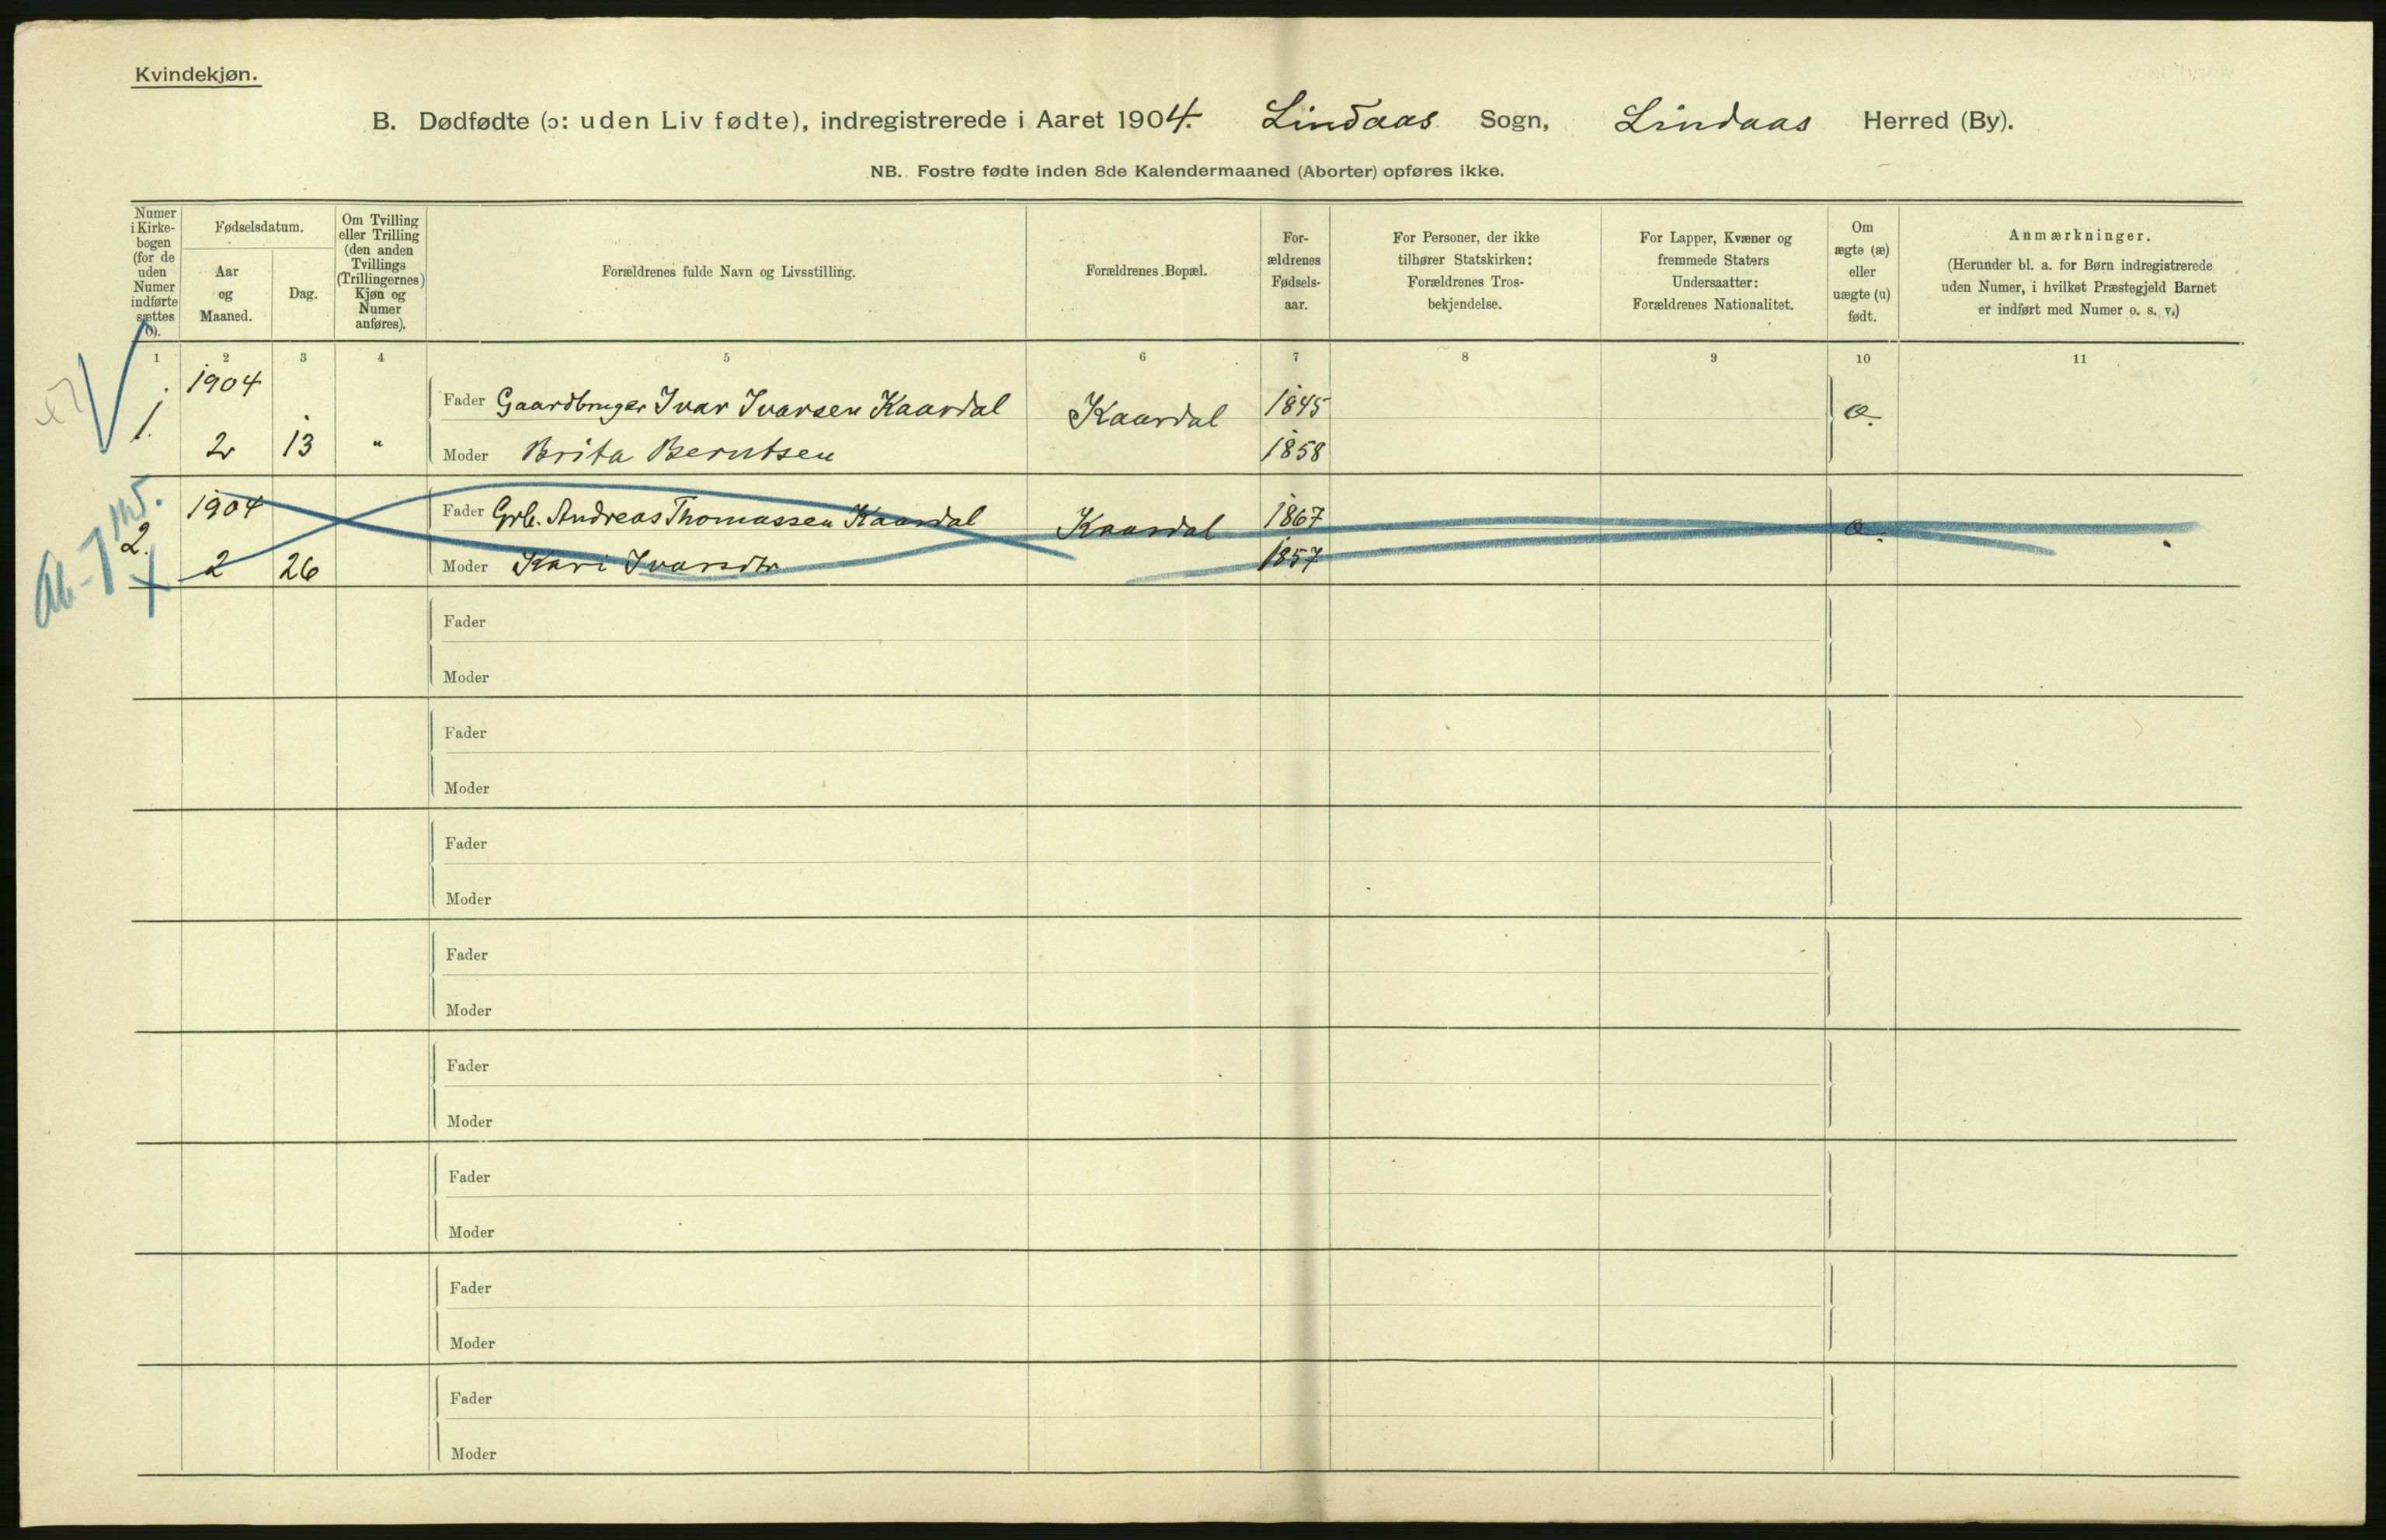 Kvindekjøn.
B. Dødfødte (ɔ: uden Liv fødte), indregistrerede i Aaret 1904. Lindaas Sogn, Lindaas Herred (By).
NB. Fostre fødte inden 8de Kalendermaaned (Aborter) opføres ikke.
Numer
i Kirke-
bogen
(for de
uden
Numer
indførte
sættes
0).
Fødselsdatum.
Aar
og
Maaned.
Dag.
Om Tvilling
eller Trilling
(den anden
Tvillings
(Trillingernes)
Kjøn og
Numer
anføres).
Forældrenes fulde Navn og Livsstilling.
Forældrenes Bopæl.
For-
ældrenes
Fødsels-
aar.
For Personer, der ikke
tilhører Statskirken:
Forældrenes Tros-
bekjendelse.
For Lapper, Kvæner og
fremmede Staters
Undersaatter:
Forældrenes Nationalitet.
Om
ægte (æ)
eller
uægte (u)
født.
Anmærkninger.
(Herunder bl. a. for Børn indregistrerede
uden Numer, i hvilket Præstegjeld Barnet
er indført med Numer o. s. v.)
1 2 3 4 5 6 7 8 9 10 11
1904
Fader Gaardbruger Ivar Ivarsen Kaardal Kaardal 1845 æ.
1.
2 13 " Moder Brita Berntsen 1858
1904 Fader Grb. Andreas Thomassen Kaardal Kaardal 1867 æ.
2.
2 26 Moder Kari Ivarsdtr 1857
Ab-7 md.
Fader
Moder
Fader
Moder
Fader
Moder
Fader
Moder
Fader
Moder
Fader
Moder
Fader
Moder
Fader
Moder